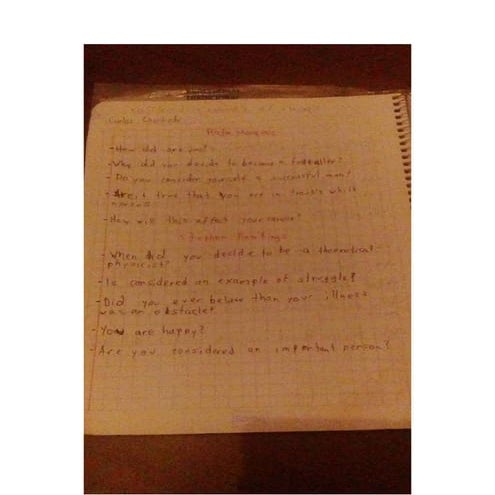 Rafa Marquez
- How old are you?
- Why did you decide to become a
- Do you consider yourself a successful man?
- it true that you are in
- How will this affect your career?
Stephen Hawkings
- When did you decide to be a theoretical
physicist?
- Is considered an example of struggle?
- Did you ever belaw than your illness
was an obstacle?
- You are happy?
- Are you considered an important person?